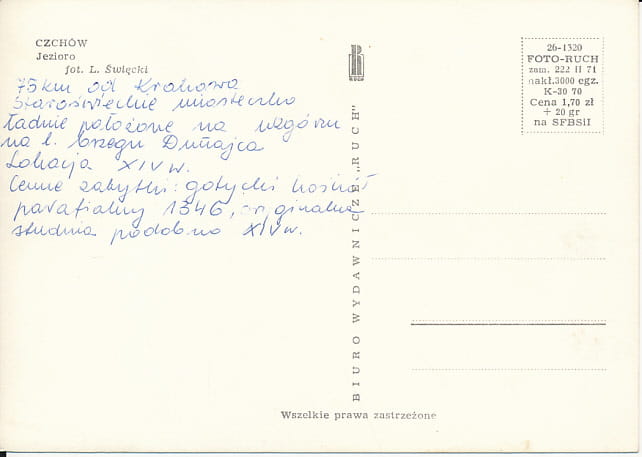 CZCHÓW
Jezioro
fot. L. Święcki
75 km od Krakowa
Staroświeckie miasteczko
ładnie położone na wzgórzu
na l. brzegu Dunajca
Lokacja XIV w.
Cenne zabytki: gotycki kościół
parafialny 1346, oryginalna
studnia podobno XIV w.
BIURO WYDAWNICZE „RUCH"
RUCH
26-1320
FOTO-RUCH
zam. 222 II 71
nakł. 3000 egz.
K-30 70
Cena 1,70 zł
+ 20 gr
na SFBSiI
Wszelkie prawa zastrzeżone